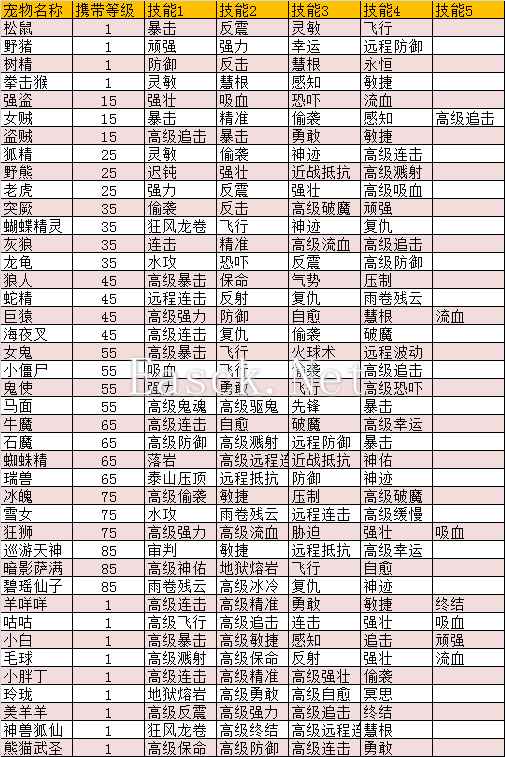 宠物名称 携带等级 技能1 技能2 技能3 技能4 技能5
松鼠 1 暴击 反震 灵敏 飞行
野猪 1 顽强 强力 幸运 远程防御
树精 1 防御 反击 慧根 永恒
拳击猴 1 灵敏 慧根 感知 敏捷
强盗 15 强壮 吸血 恐吓 流血
女贼 15 暴击 精准 偷袭 感知 高级追击
盗贼 15 高级追击 暴击 勇敢 敏捷
狐精 25 灵敏 偷袭 神迹 高级连击
野熊 25 迟钝 强壮 近战抵抗 高级溅射
老虎 25 强力 反震 强壮 高级吸血
突厥 35 偷袭 反击 高级破魔 顽强
蝴蝶精灵 35 狂风龙卷 飞行 神迹 复仇
灰狼 35 连击 精准 高级流血 高级追击
龙龟 35 水攻 恐吓 反震 高级防御
狼人 45 高级暴击 保命 气势 压制
蛇精 45 远程连击 反射 复仇 雨卷残云
巨猿 45 高级强力 防御 自愈 慧根 流血
海夜叉 45 高级连击 复仇 偷袭 破魔
女鬼 55 高级暴击 飞行 火球术 远程波动
小僵尸 55 吸血 飞行 偷袭 高级追击
鬼使 55 强力 勇敢 飞行 高级恐吓
马面 55 高级鬼魂 高级驱鬼 先锋 暴击
牛魔 65 高级连击 自愈 破魔 高级幸运
石魔 65 高级防御 高级溅射 远程防御 暴击
蜘蛛精 65 落岩 高级远程连 近战抵抗 神佑
瑞兽 65 泰山压顶 远程抵抗 防御 神迹
冰魄 75 高级偷袭 敏捷 压制 高级破魔
雪女 75 水攻 雨卷残云 远程连击 高级缓慢
狂狮 75 高级强力 高级流血 胁迫 强壮 吸血
巡游天神 85 审判 敏捷 远程抵抗 高级幸运
暗影萨满 85 高级神佑 地狱熔岩 飞行 自愈
碧瑶仙子 85 雨卷残云 高级冰冷 复仇 神迹
羊咩咩 1 高级连击 高级精准 勇敢 敏捷 终结
咕咕 1 高级飞行 高级追击 连击 强壮 吸血
小白 1 高级暴击 高级敏捷 感知 追击 顽强
毛球 1 高级溅射 高级保命 反射 强壮 流血
小胖丁 1 高级连击 高级精准 高级强壮 偷袭
玲珑 1 地狱熔岩 高级勇敢 高级自愈 冥思
美羊羊 1 高级反震 高级强力 高级追击 终结
神兽狐仙 1 狂风龙卷 高级终结 高级远程连 慧根
熊猫武圣 1 高级保命 高级防御 高级连击 勇敢